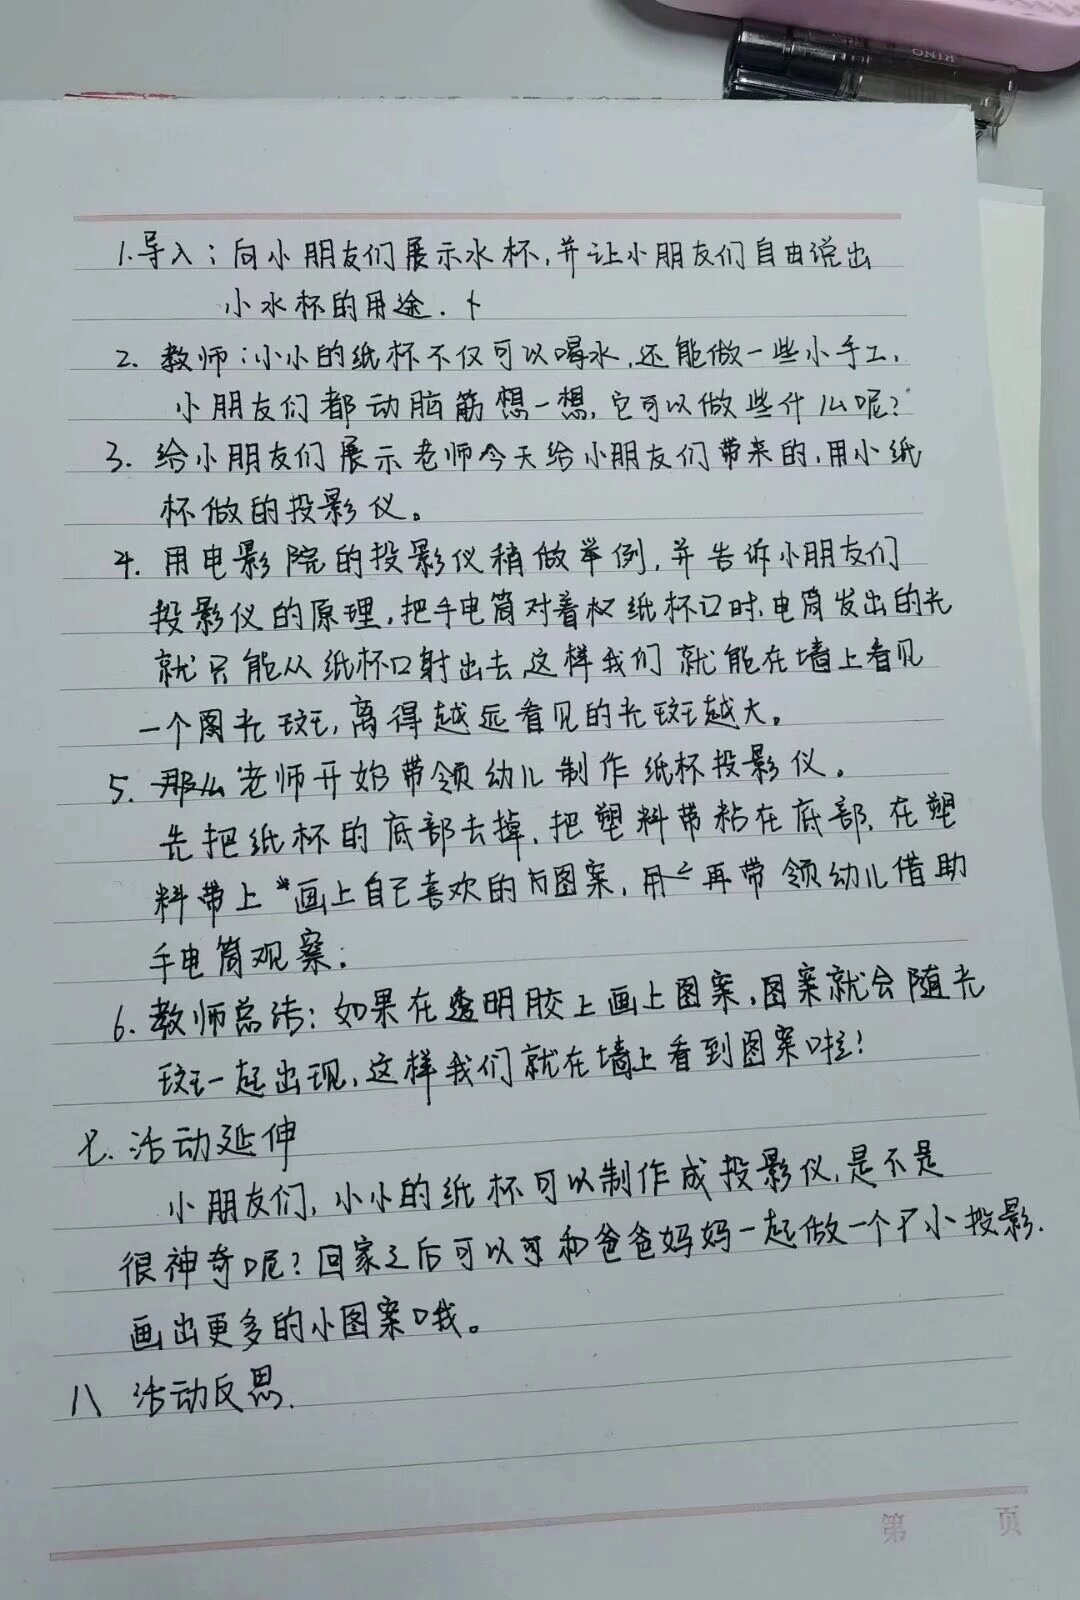 1.导入：向小朋友们展示水杯，并让小朋友们自由说出
小水杯的用途.
2. 教师：小小的纸杯不仅可以喝水，还能做一些小手工，
小朋友们都动脑筋想一想，它可以做些什么呢？
3. 给小朋友们展示老师今天给小朋友们带来的，用小纸
杯做的投影仪。
4. 用电影院的投影仪稍做举例，并告诉小朋友们
投影仪的原理，把手电筒对着纸杯口时，电筒发出的光
就只能从纸杯口射出去，这样我们就能在墙上看见
一个圆光斑，离得越远看见的光斑越大。
5. 老师开始带领幼儿制作纸杯投影仪。
先把纸杯的底部去掉，把塑料带粘在底部，在塑
料带上画上自己喜欢的图案，再带领幼儿借助
手电筒观察.
6. 教师总结：如果在透明胶上画上图案，图案就会随光
斑一起出现，这样我们就在墙上看到图案啦！
七. 活动延伸
小朋友们，小小的纸杯可以制作成投影仪，是不是
很神奇呢？回家之后可以和爸爸妈妈一起做一个小投影.
画出更多的小图案哦。
八 活动反思.
第 页
KINO